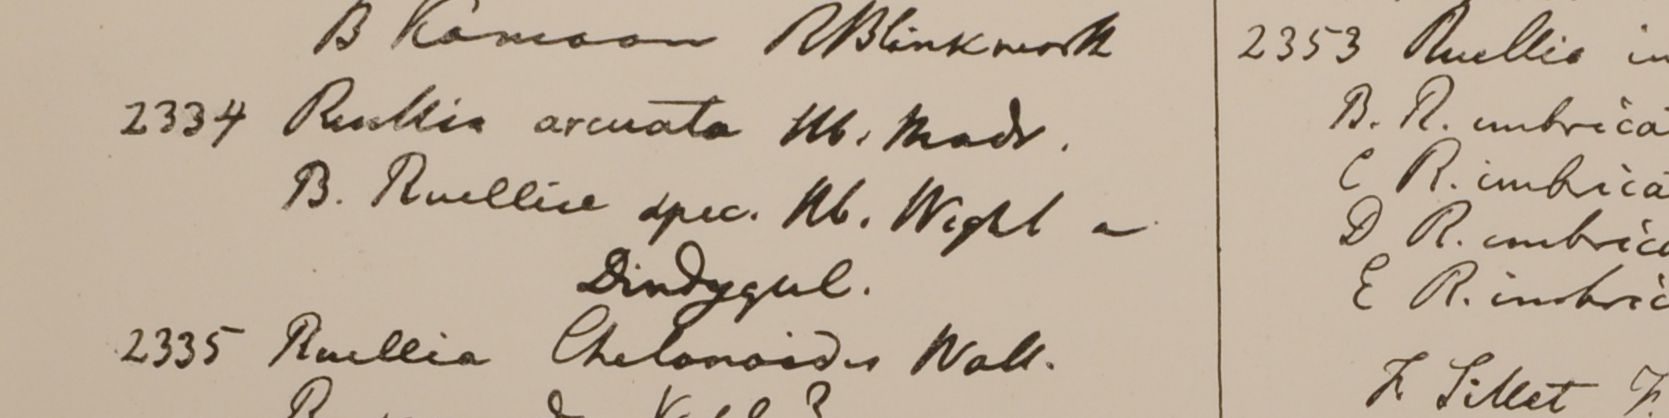 B Kamaon RBlinkworth
2334 Ruellia arcuata Hb. Madr.
B. Ruelliae spec. Hb. Wight a
Dindygul.
2335 Ruellia Chelonoides Wall.
2353 Ruellia in
B. R. imbrica
C R. imbrica
D R. imbrica
E R. imbric
F. Sillet F.